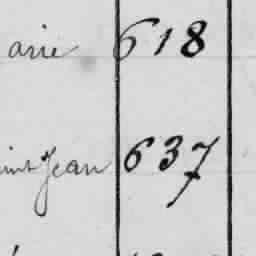 arie 618
int Jean 637